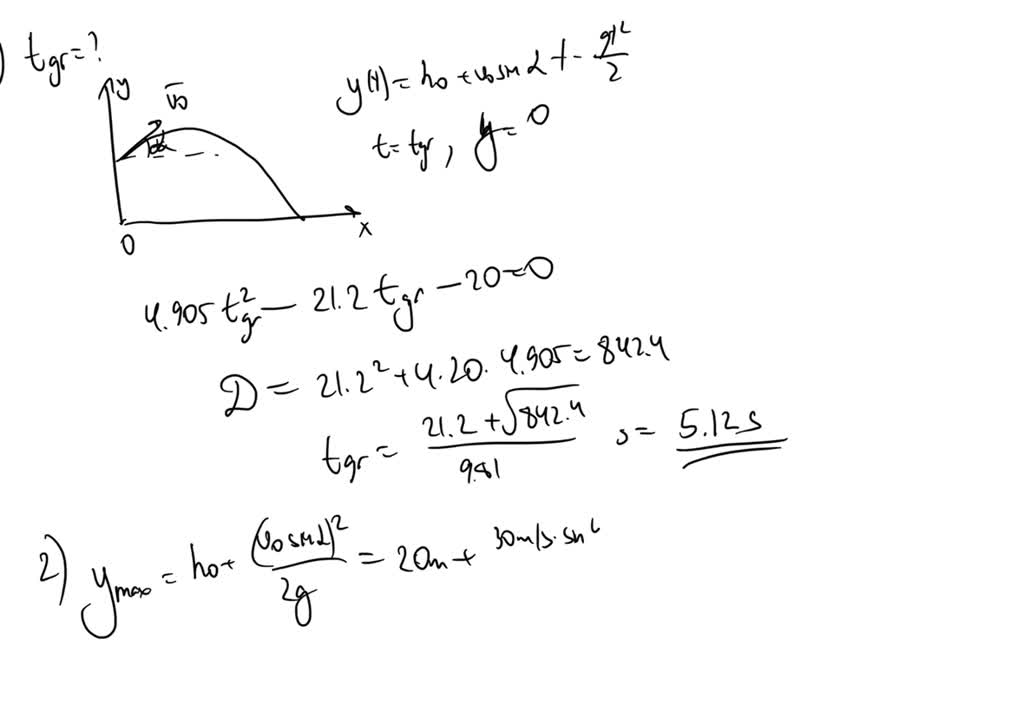 ) tgr = ?
y(t) = h0 + v0 sin α t - gt²/2
y
v0
α
t = tgr, y = 0
0
x
4.905 tgr² - 21.2 tgr - 20 = 0
D = 21.2² + 4.20. 4.905 = 842.4
tgr = (21.2 + √842.4)/9.81 s = 5.12s
2) ymax = h0 + (v0 sin α)²/2g = 20m + 30m/s. sin